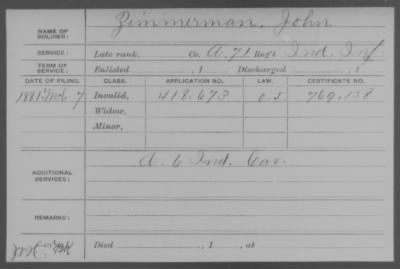 NAME OF SOLDIER: Zimmerman, John
SERVICE: Late rank, Co. A. 71 Reg't Ind. Inf
TERM OF SERVICE: Enlisted , 1 Discharged , 1
DATE OF FILING. CLASS. APPLICATION NO. LAW. CERTIFICATE NO.
1881 Mch. 7 Invalid, 418.673 O.S. 769.158
Widow,
Minor,
ADDITIONAL SERVICES: A. 6 Ind. Cav.
REMARKS:
Died , 1 , at